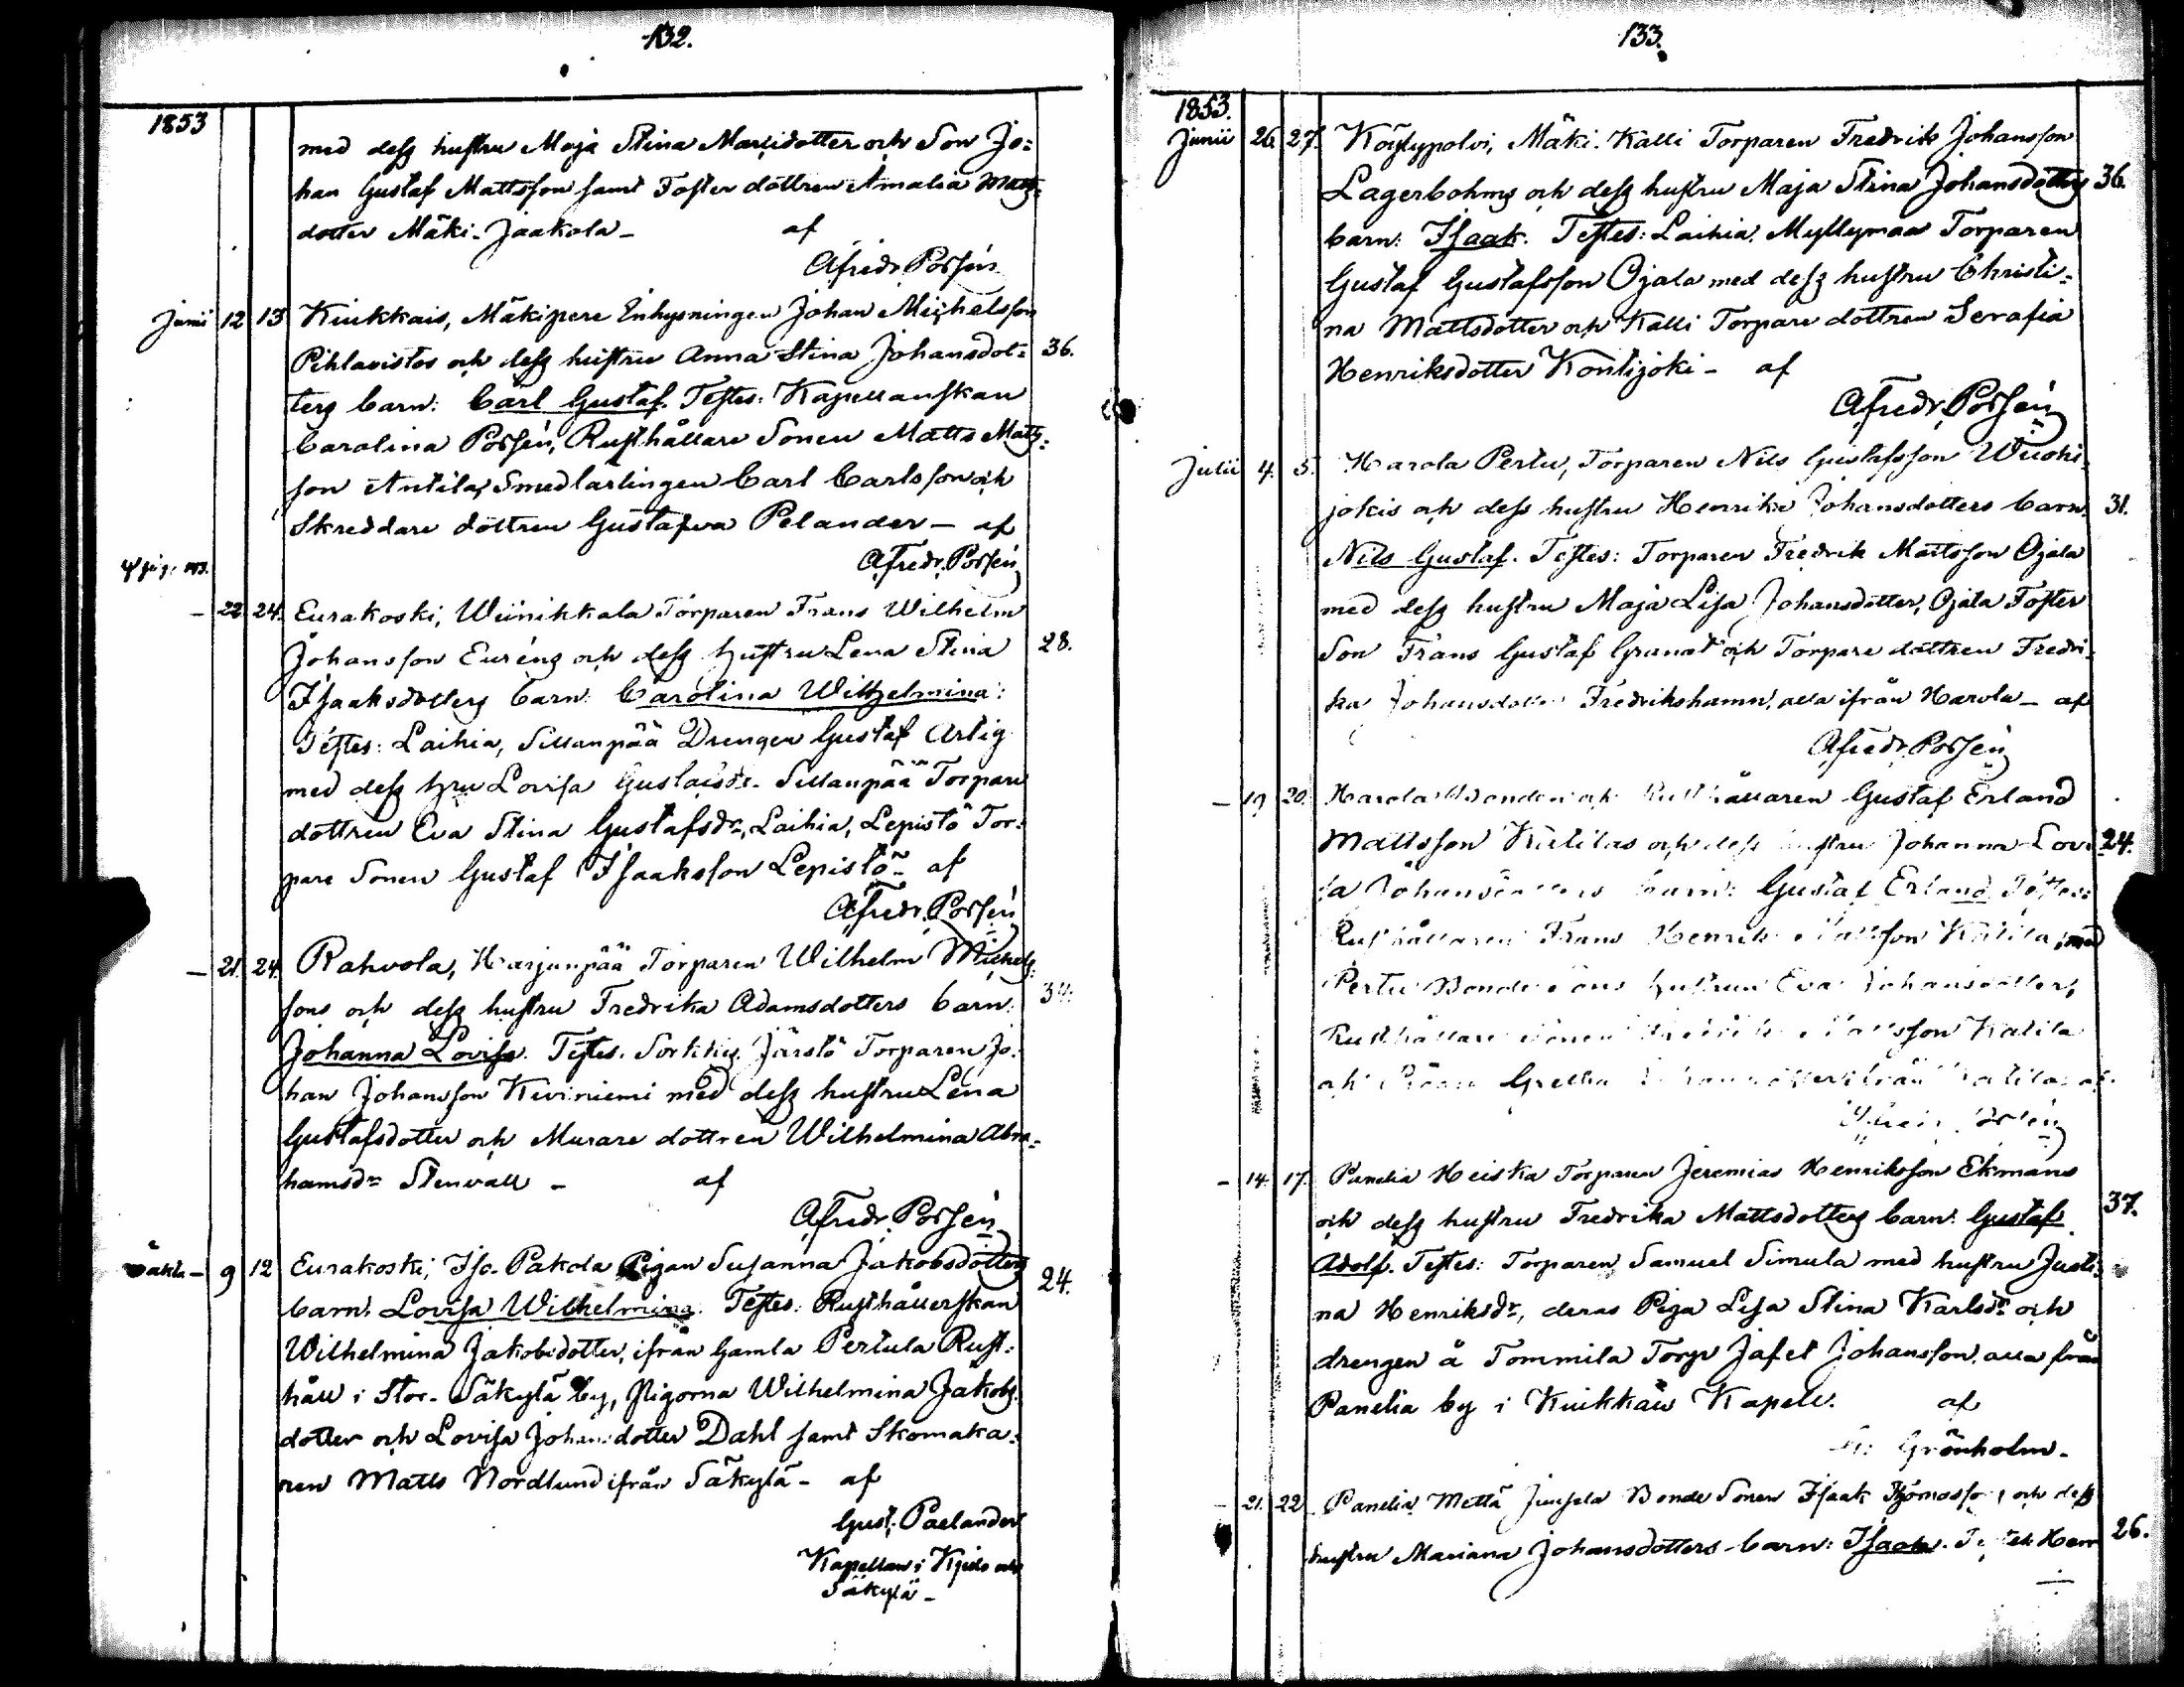 132.
1853
med dess hustru Maja Stina Mattsdotter och Son Jo=
han Gustaf Mattsson samt Foster dottren Amalia Matts=
dotter Mäki-Jaakola - af
Afredr. Porsén
Junii 12 13 Kiukkais, Mäkipere Enhysningen Johan Michelsson
Pihlavistos och dess hustru Anna Stina Johansdot= 36.
ters barn: Carl Gustaf. Testes: Kapellanskan
Carolina Porsén, Rusthållare Sonen Matts Matts=
son Antila, Smedlärlingen Carl Carlsson och
Skreddare dottren Gustafva Pelander - af
Afredr. Porsén
- 22. 24. Eurakoski, Wiinikkala Torparen Frans Wilhelm
Johansson Euréns och dess hustru Lena Stina 28.
Isaksdotters barn: Carolina Wilhelmina:
Testes: Laihia, Sillanpää Drengen Gustaf Artig
med dess hru Lovisa Gustafsdr. Sillanpää Torpare
dottren Eva Stina Gustafsdr, Laihia, Lepistö Tor=
pare Sonen Gustaf Isaaksson Lepistö - af
Afredr. Porsén
- 21. 24. Rahvola, Harjunpää Torparen Wilhelm Michels=
sons och dess hustru Fredrika Adamsdotters barn: 34.
Johanna Lovisa. Testes. Sorkkis, Järstö Torparen Jo=
han Johansson Kiviniemi med dess hustru Lena
Gustafsdotter och Murare dottren Wilhelmina Abra=
hamsdr Stenvall - af
Afredr. Porsén
- 9 12 Eurakoski, Iso-Pakola Pigan Susanna Jakobsdotters
barn. Lovisa Wilhelmina. Testes: Rusthållerskan 24.
Wilhelmina Jakobsdotter, ifrån Gamla Pertula Rust=
håll i Stor-Säkylä by, Pigorna Wilhelmina Jakobs=
dotter och Lovisa Johansdotter Dahl samt Skomaka=
ren Matts Nordlund ifrån Säkylä - af
Gust. Paelander
Kapellan i Kjulo och
Säkylä -
133.
1853.
Junii 26. 27. Köylypolvi, Mäki-Kalli Torparen Fredrik Johansson
Lagerbohms och dess hustru Maja Stina Johansdotters 36.
barn: Isaak. Testes: Laihia, Myllymaa Torparen
Gustaf Gustafsson Ojala med dess hustru Christi=
na Mattsdotter och Kalli Torpare dottren Serafia
Henriksdotter Kontijoki - af
Afredr. Porsén
Julii 4. 5. Harola Pertu, Torparen Nils Gustafsson Wuohi=
jokis och dess hustru Henrika Johansdotters barn: 31.
Nils Gustaf. Testes: Torparen Fredrik Mattsson Ojala
med dess hustru Maja Lisa Johansdotter, Ojala Foster
Son Frans Gustaf Granat och Torpare dottren Fredri=
ka Johansdotter Fredrikshamn, alla ifrån Harola - af
Afredr. Porsén
- 19 20. Harola Bonden och Rusthållaren Gustaf Erland
Mattsson Katilas och dess hustru Johanna Lovi 24.
sa Johansdotters barn: Gustaf Erland Testes:
Rusthållaren Frans Henrik Mattsson Katila, med
Pertu Bonde hustrun Eva Johansdotter,
Rusthållare Sonen Mattsson Katila
och Gretha ifrån Katila af
Porsén
- 14. 17. Panelia Heiska Torparen Jeremias Henriksson Ekmans
och dess hustru Fredrika Mattsdotters barn: Gustaf 37.
Adolf. Testes: Torparen Samuel Simula med hustru Justi=
na Henriksdr, deras Piga Lisa Stina Karlsdr och
drengen å Tommila Torp Jafet Johansson, alla från
Panelia by i Kiukkais Kapell. af
Grönholm.
- 21. 22 Panelia Mettä Juusela Bonde Sonen Isaak Thomasson och dess
hustru Mariana Johansdotters barn: Isaak. 26.